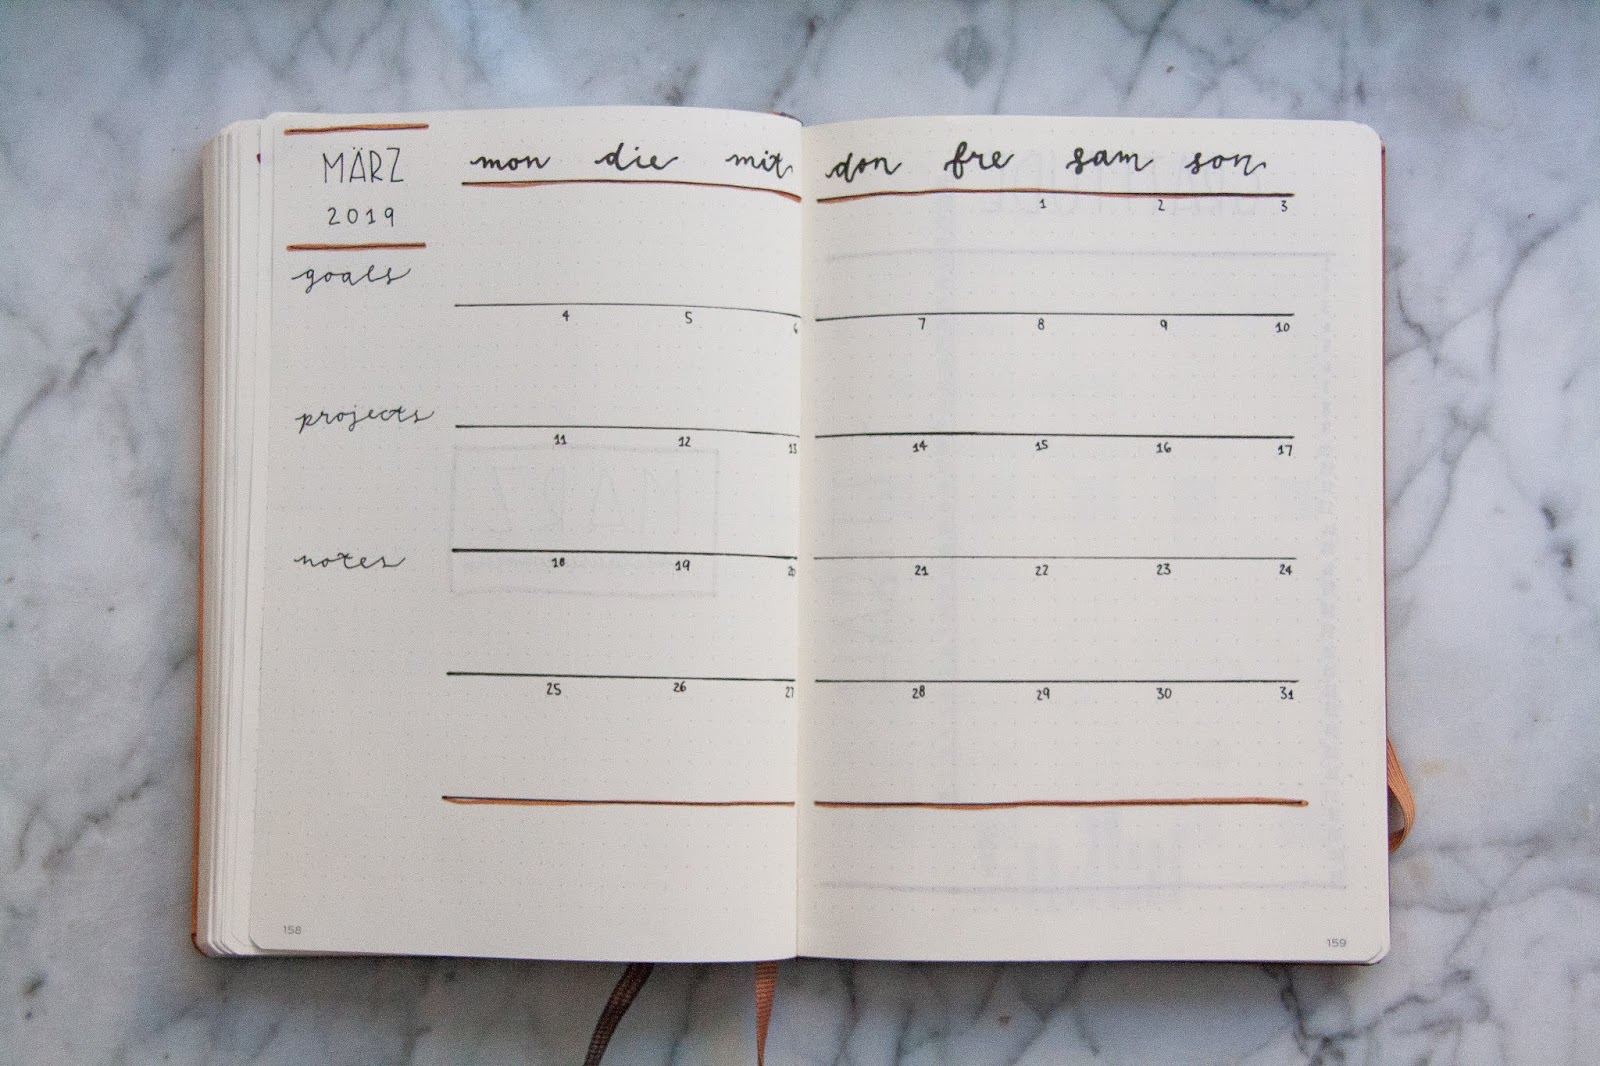 MÄRZ
2019
mon die mit don fre sam son
1 2 3
goals
4 5 6 7 8 9 10
projects
11 12 13 14 15 16 17
notes
18 19 20 21 22 23 24
25 26 27 28 29 30 31
158
159